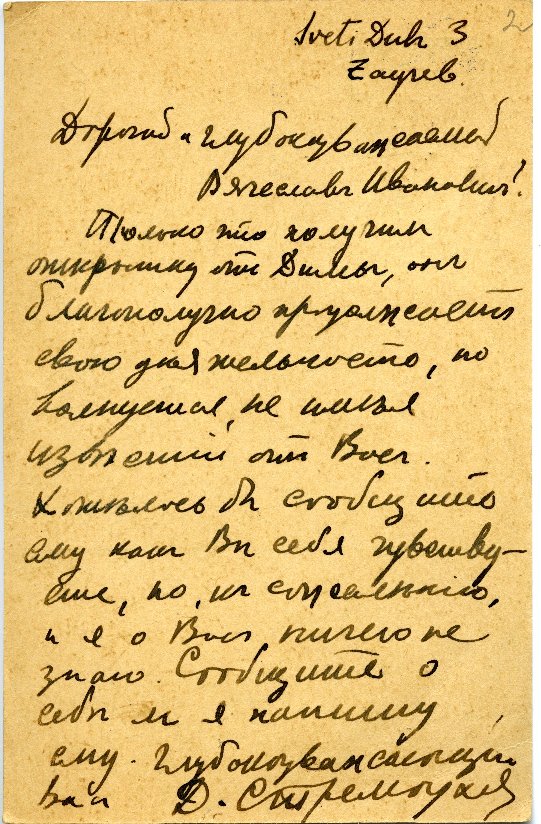 Sveti Duh 3 2
Zagreb.
Дорогой и глубокоуважаемый
Вячеславъ Ивановичъ!
Только что получилъ
открытку отъ Димы, онъ
благополучно продолжаетъ
свою дѣятельность, но
волнуется, не имѣя
извѣстій отъ Васъ.
Хотѣлось бы сообщить
ему какъ Вы себя чувству-
ете, но, къ сожалѣнію,
и я о Васъ ничего не
знаю. Сообщите о
себѣ и я напишу
ему. Глубокоуважающій
Васъ Д. Стремоуховъ